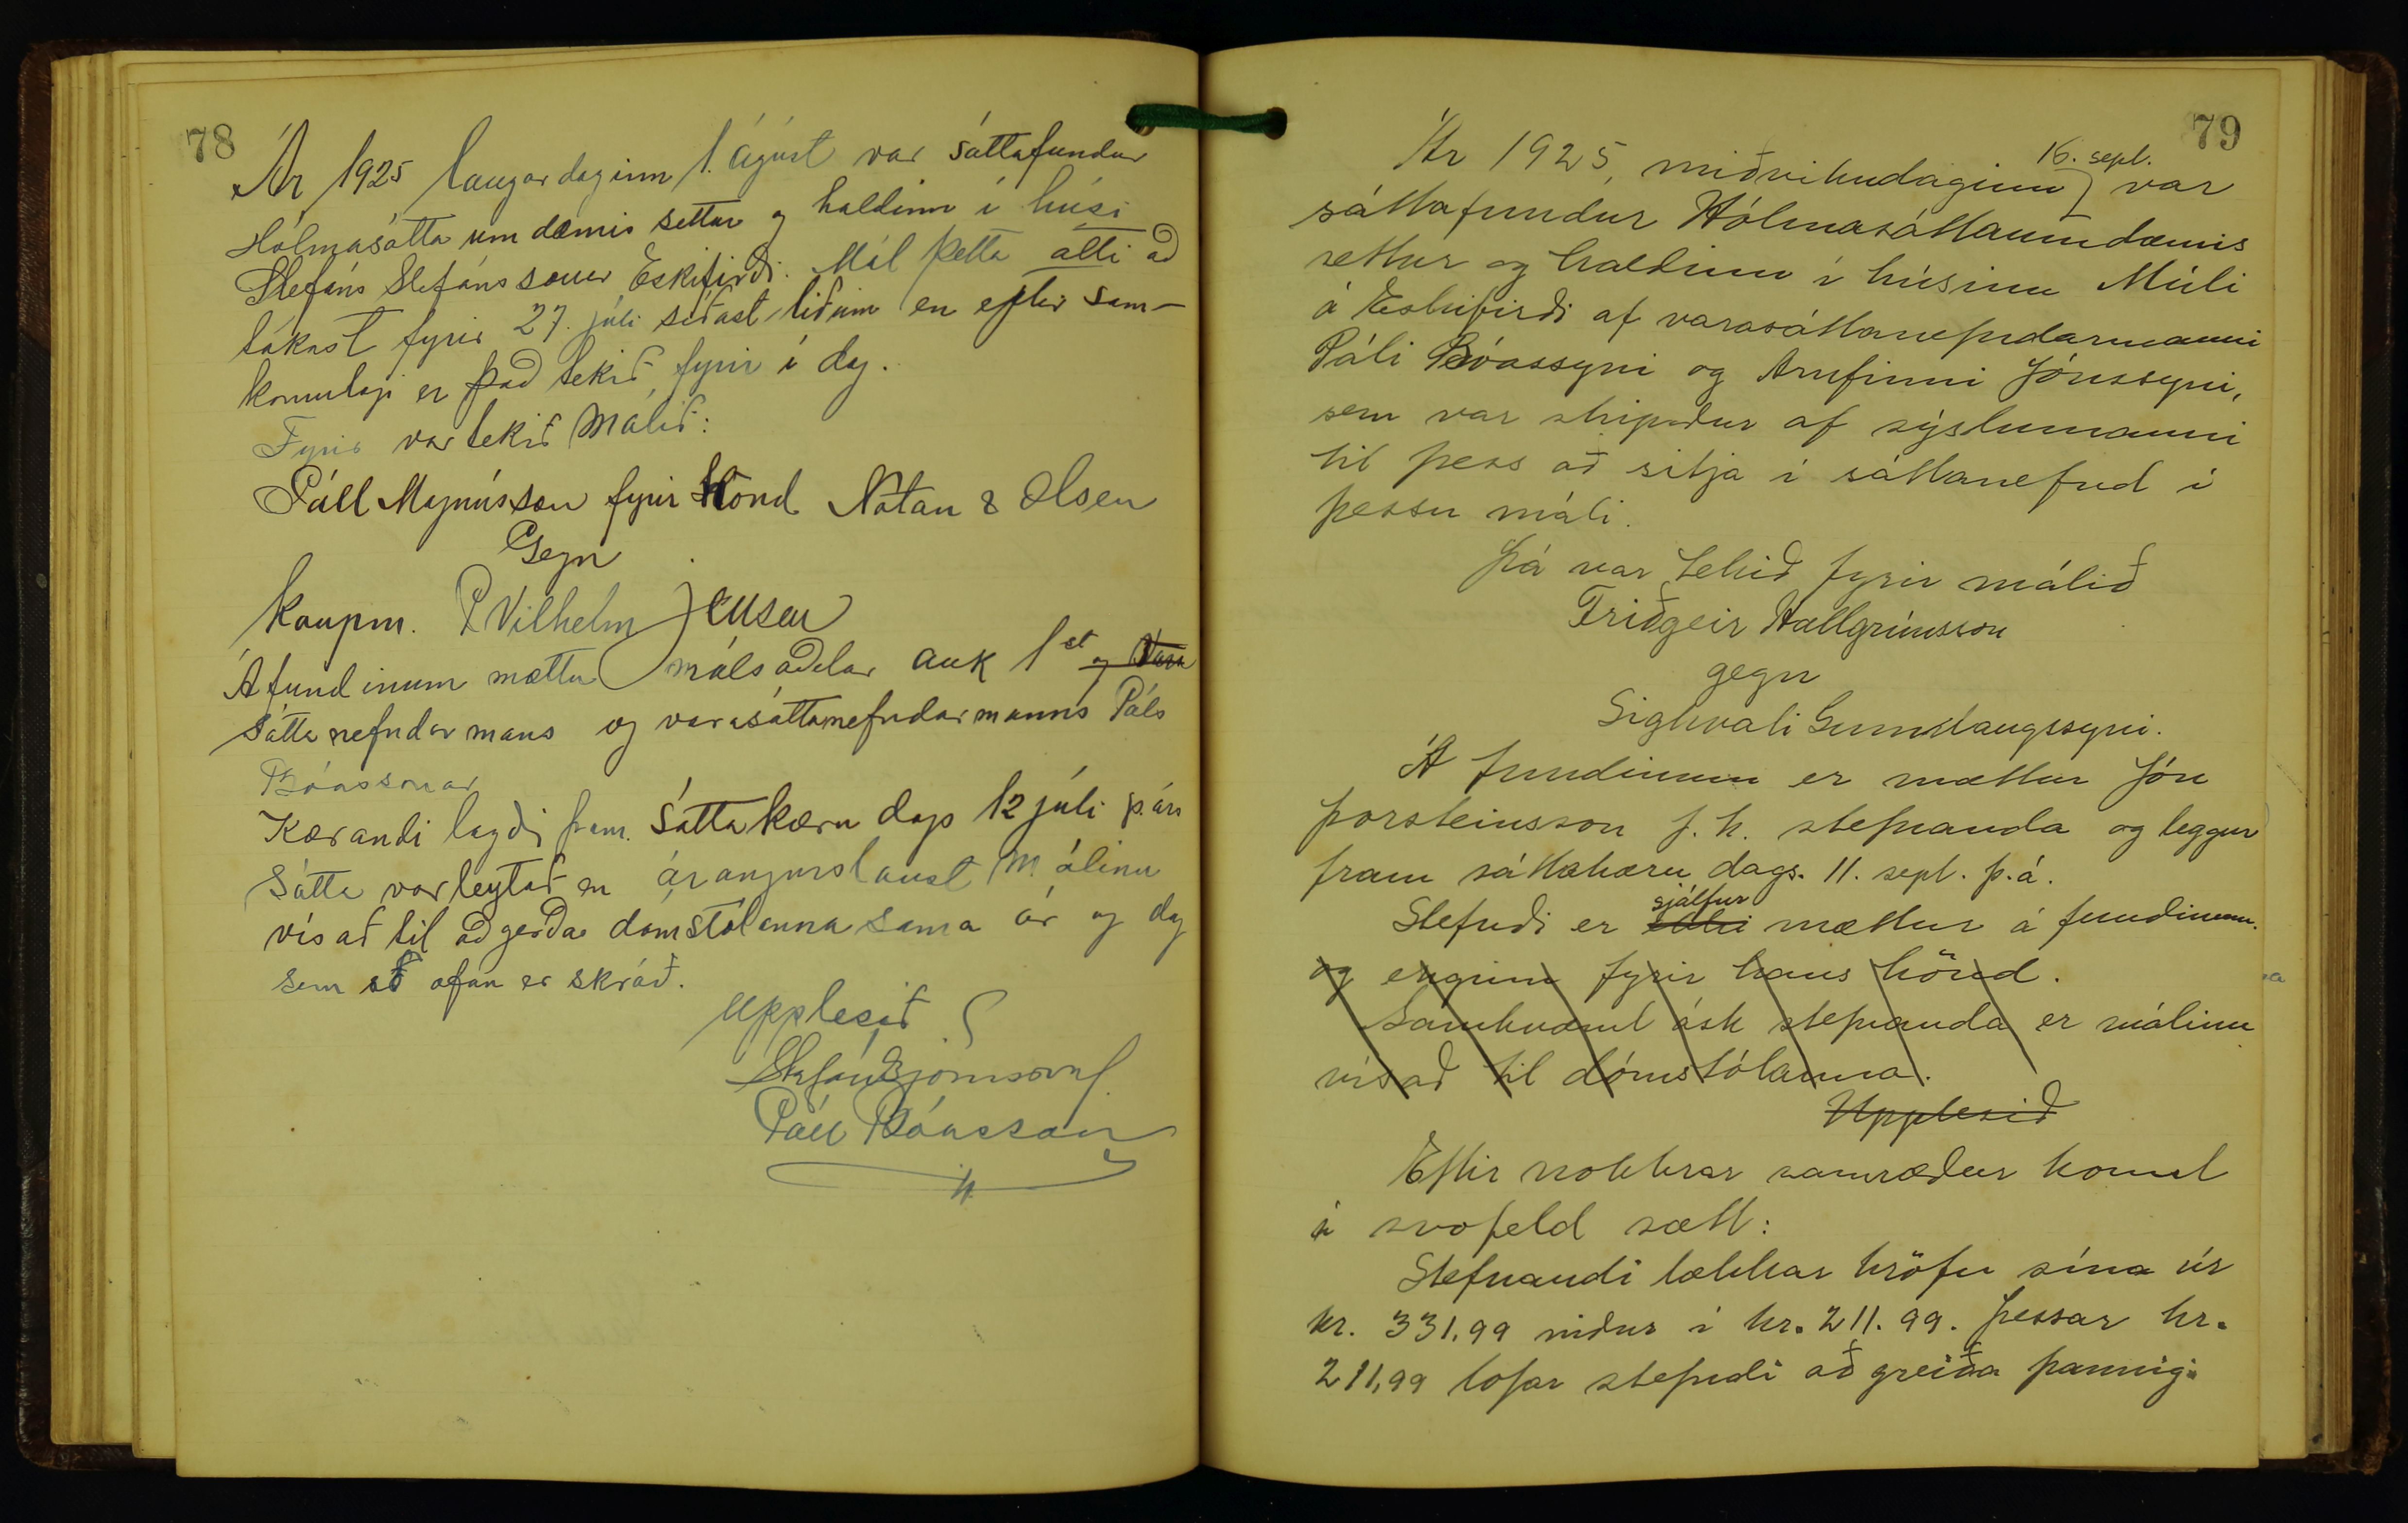 78
Ár 1925 laugardaginn 1. ágúst var sáttafundur
Hólmasáttaumdæmis settur og haldinn í húsi
Stefáns Stefánssonar Eskifirði. Mál þetta átti að
takast fyrir 27. júli síðast liðinn en eftir sam-
komulagi er það tekið fyrir í dag.
Fyrir var tekið Málið:
Páll Magnússon fyrir Hönd Natan & Olsen
Gegn
Kaupm. P Vilhelm Jensen
Á fundinum mættu málsaðilar auk 1st og Vara
sáttanefndarmans og varasáttanefndarmanns Páls
Bóassonar
Kærandi lagði fram Sáttakæru dags 12 júli þ. árs
Sátta var leytað en árangurslaust Málinu
vísað til aðgerða dómstólanna sama ár og dag
sem að ofan er skráð.
Upplesið
Stefán Björnsson
Páll Bóasson
79
Ár 1925, miðvikudaginn 16. sept. var
sáttafundur Hólmasáttaumdæmis
settur og haldinn í húsinu Múli
á Eskifirði af varasáttanefndarmanni
Páli Bóassyni og Arnfinni Jónssyni,
sem var skipaður af sýslumanni
til þess að sitja í sáttanefnd í
þessu máli.
Þá var tekið fyrir málið
Friðgeir Hallgrímsson
gegn
Sighvati Gunnlaugssyni.
Á fundinum er mættur Jón
Þorsteinsson f. h. stefnanda og leggur
fram sáttakæru dags. 11. sept. þ. á.
Stefndi er ekki sjálfur mættur á fundinum.
og enginn fyrir hans hönd.
Samkvæmt ósk stefnanda er málinu
vísað til dómstólanna.
Upplesið
Eftir nokkrar samræður komst
á svofeld sætt:
Stefnandi lækkar kröfu sína úr
kr. 331,99 niður í kr. 211.99. Þessar kr.
211,99 lofar stefndi að greiða þannig: